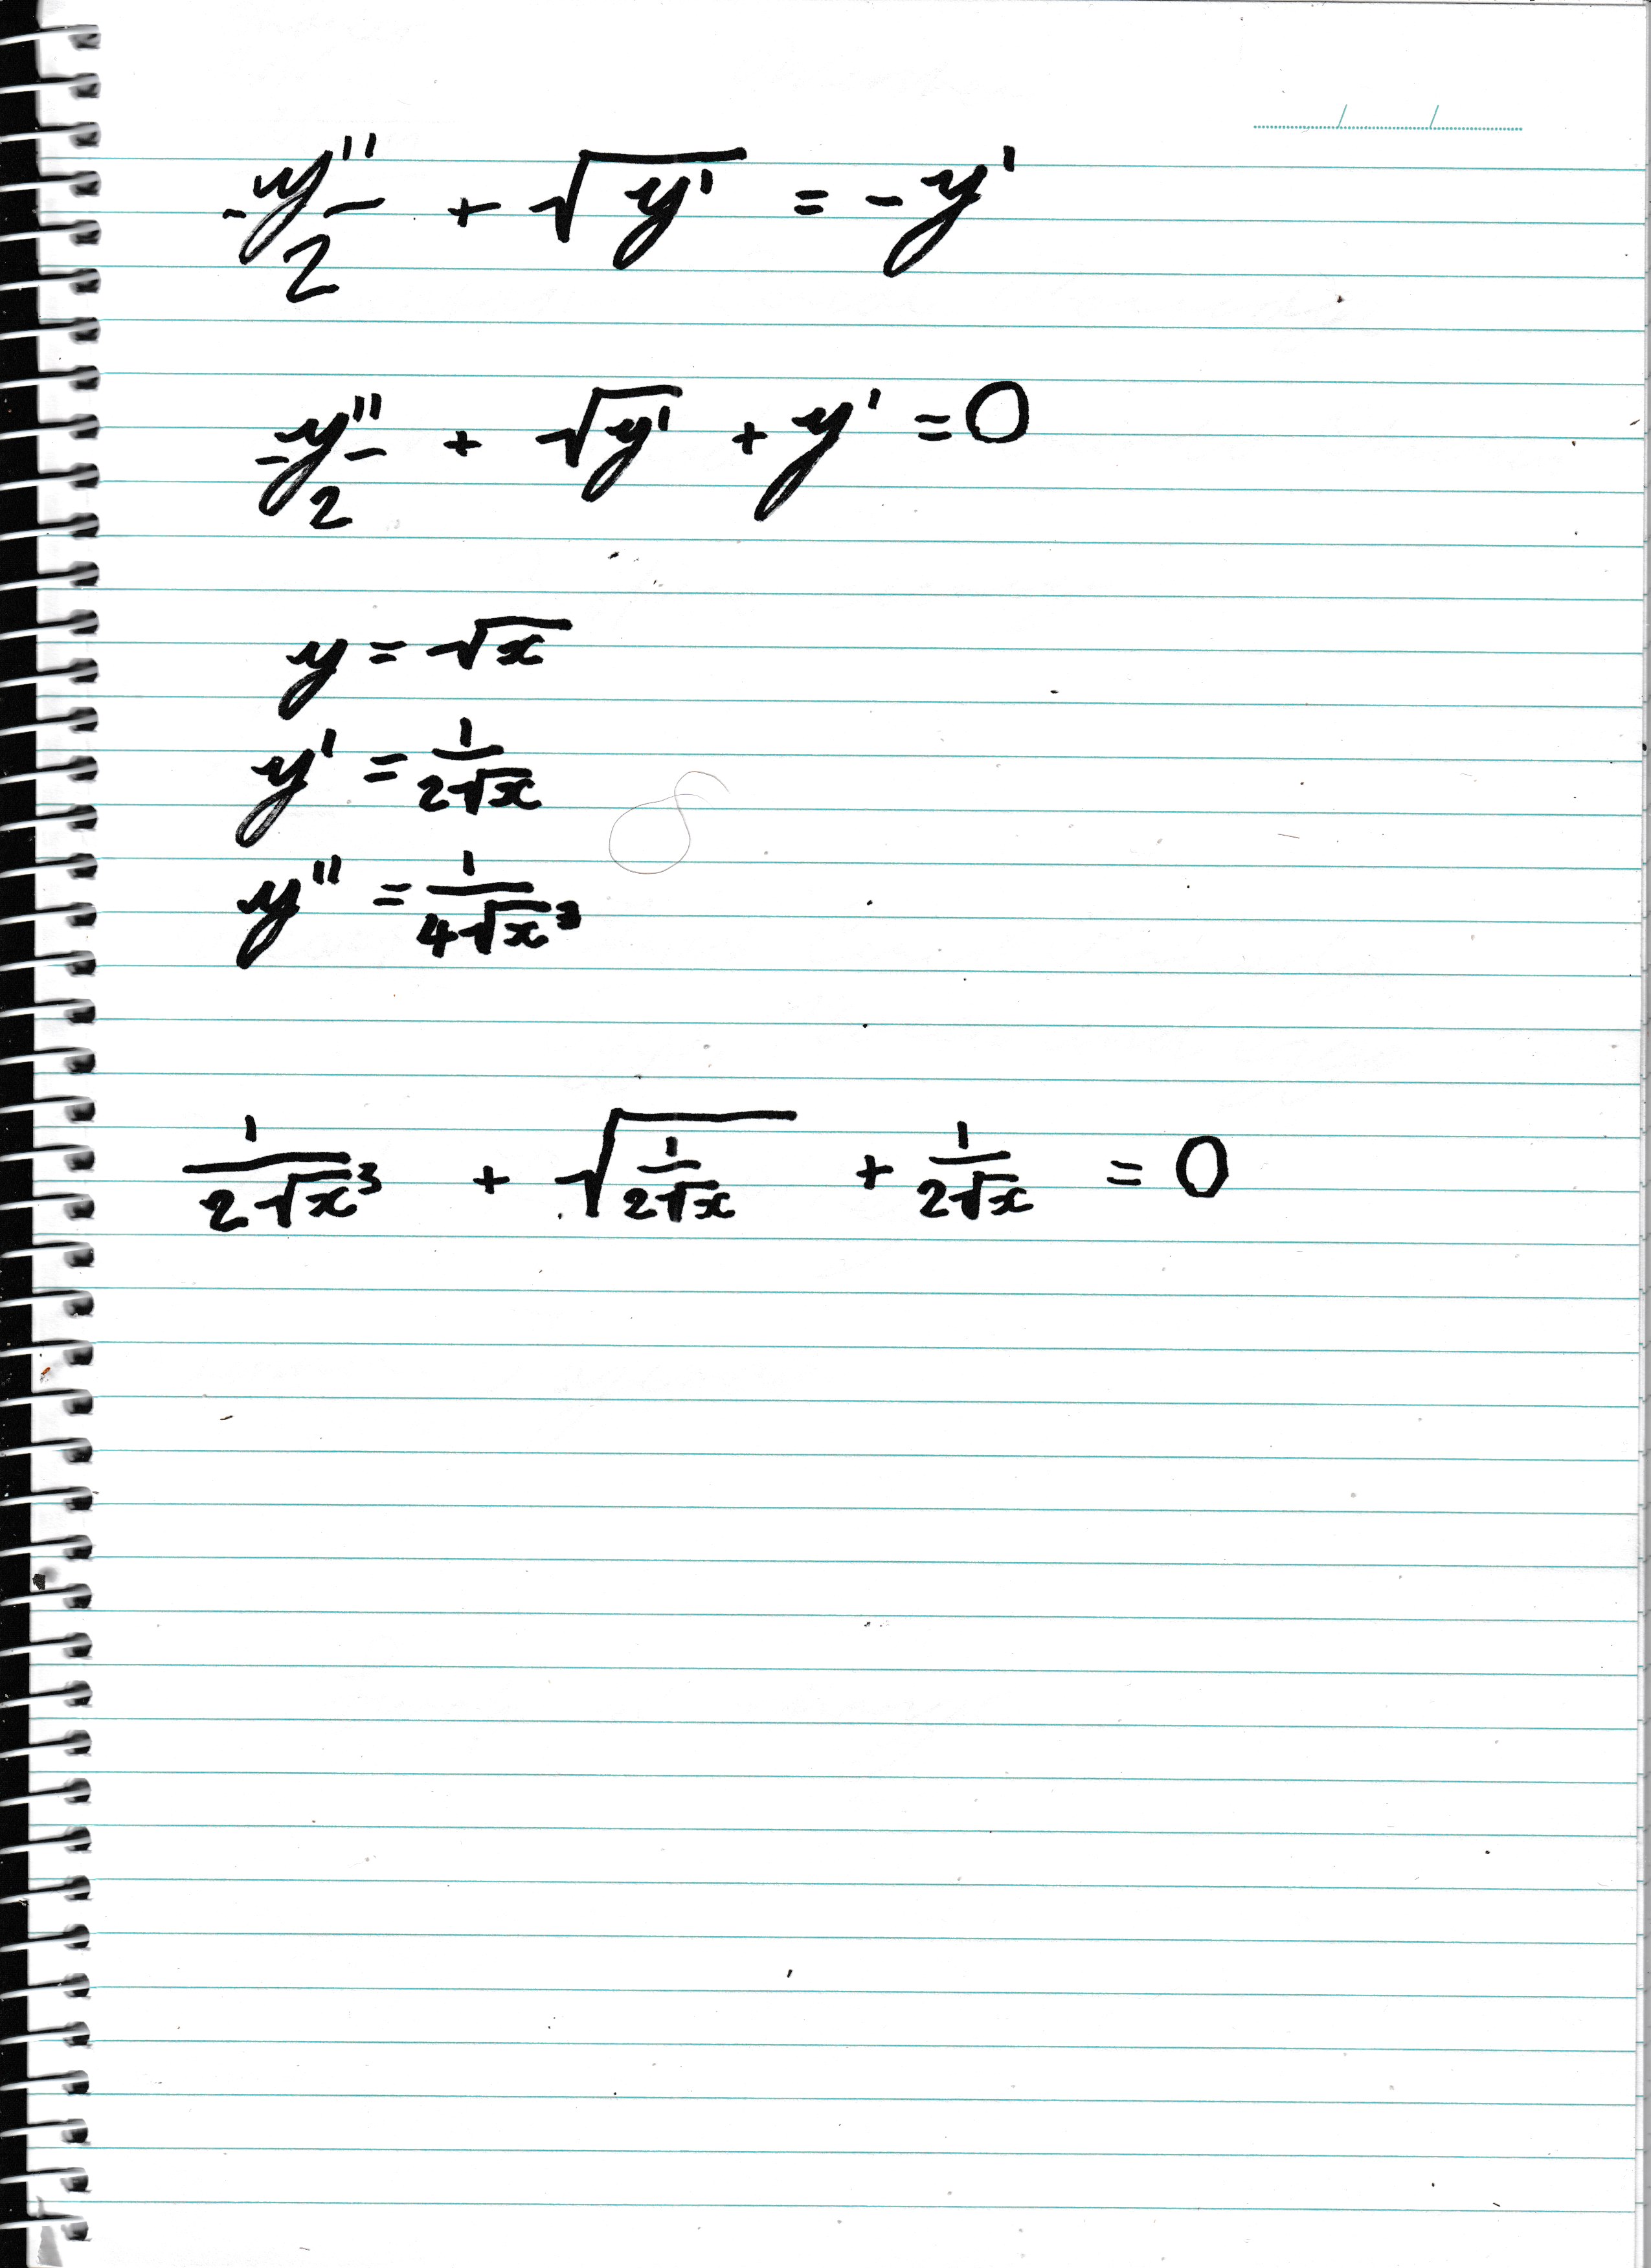 -y''/2 + √y' = -y'
-y''/2 + √y' + y' = 0
y = √x
y' = 1/(2√x)
y'' = 1/(4√x³)
1/(2√x³) + √(1/(2√x)) + 1/(2√x) = 0